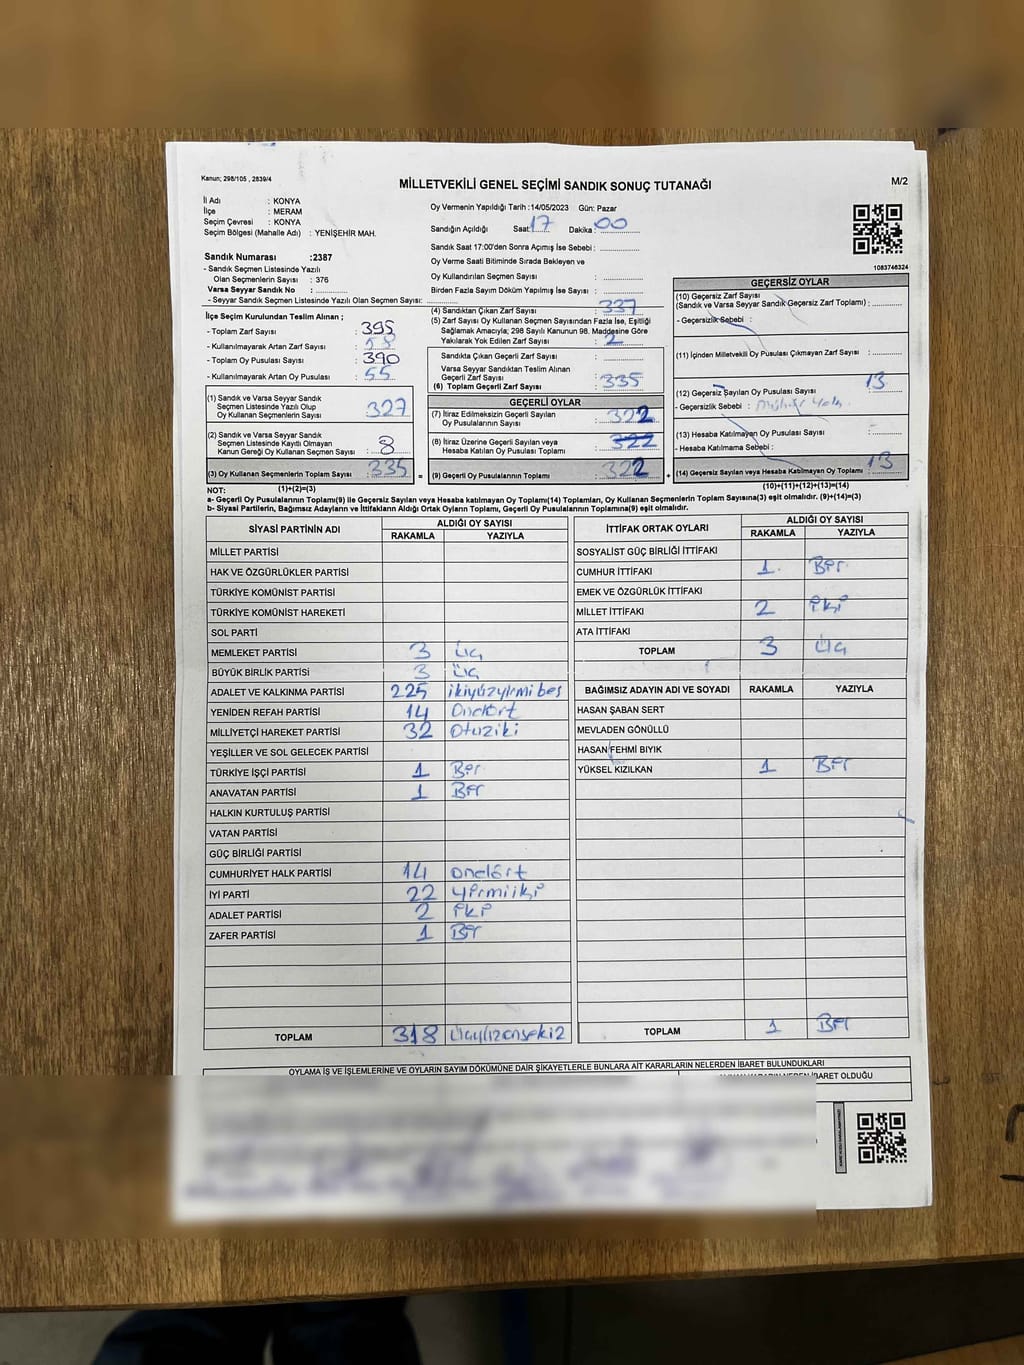 Kanun; 298/105 , 2839/4
MİLLETVEKİLİ GENEL SEÇİMİ SANDIK SONUÇ TUTANAĞI
M/2
İl Adı : KONYA
İlçe : MERAM
Seçim Çevresi : KONYA
Seçim Bölgesi (Mahalle Adı) : YENİŞEHİR MAH.
Sandık Numarası :2387
- Sandık Seçmen Listesinde Yazılı
Olan Seçmenlerin Sayısı : 376
Varsa Seyyar Sandık No :
- Seyyar Sandık Seçmen Listesinde Yazılı Olan Seçmen Sayısı:
Oy Vermenin Yapıldığı Tarih :14/05/2023 Gün: Pazar
Sandığın Açıldığı Saat: 17 Dakika: 00
Sandık Saat 17:00'den Sonra Açımış İse Sebebi :
Oy Verme Saati Bitiminde Sırada Bekleyen ve
Oy Kullandırılan Seçmen Sayısı :
Birden Fazla Sayım Döküm Yapılmış İse Sayısı :
1083746324
İlçe Seçim Kurulundan Teslim Alınan ;
- Toplam Zarf Sayısı : 395
- Kullanılmayarak Artan Zarf Sayısı : 58
- Toplam Oy Pusulası Sayısı : 390
- Kullanılmayarak Artan Oy Pusulası : 55
(1) Sandık ve Varsa Seyyar Sandık
Seçmen Listesinde Yazılı Olup
Oy Kullanan Seçmenlerin Sayısı : 327
(2) Sandık ve Varsa Seyyar Sandık
Seçmen Listesinde Kayıtlı Olmayan
Kanun Gereği Oy Kullanan Seçmen Sayısı : 8
(3) Oy Kullanan Seçmenlerin Toplam Sayısı : 335
(1)+(2)=(3)
(4) Sandıktan Çıkan Zarf Sayısı : 337
(5) Zarf Sayısı Oy Kullanan Seçmen Sayısından Fazla İse, Eşitliği
Sağlamak Amacıyla; 298 Sayılı Kanunun 98. Maddesine Göre
Yakılarak Yok Edilen Zarf Sayısı : 2
Sandıkta Çıkan Geçerli Zarf Sayısı :
Varsa Seyyar Sandıktan Teslim Alınan
Geçerli Zarf Sayısı :
(6) Toplam Geçerli Zarf Sayısı : 335
GEÇERLİ OYLAR
(7) İtiraz Edilmeksizin Geçerli Sayılan
Oy Pusulalarının Sayısı : 322
(8) İtiraz Üzerine Geçerli Sayılan veya
Hesaba Katılan Oy Toplamı : 322
(9) Geçerli Oy Pusulalarının Toplamı : 322
GEÇERSİZ OYLAR
(10) Geçersiz Zarf Sayısı
(Sandık ve Varsa Seyyar Sandık Geçersiz Zarf Toplamı) :
- Geçersizlik Sebebi :
(11) İçinden Milletvekili Oy Pusulası Çıkmayan Zarf Sayısı :
(12) Geçersiz Sayılan Oy Pusulası Sayısı : 13
- Geçersizlik Sebebi :
(13) Hesaba Katılmayan Oy Pusulası Sayısı :
- Hesaba Katılmama Sebebi :
(14) Geçersiz Sayılan veya Hesaba Katılmayan Oy Toplamı : 13
(10)+(11)+(12)+(13)=(14)
NOT:
a- Geçerli Oy Pusulalarının Toplamı(9) ile Geçersiz Sayılan veya Hesaba katılmayan Oy Toplamı(14) Toplamları, Oy Kullanan Seçmenlerin Toplam Sayısına(3) eşit olmalıdır. (9)+(14)=(3)
b- Siyasi Partilerin, Bağımsız Adayların ve İttifakların Aldığı Ortak Oyların Toplamı, Geçerli Oy Pusulalarının Toplamına(9) eşit olmalıdır.
SİYASİ PARTİNİN ADI ALDIĞI OY SAYISI
RAKAMLA YAZIYLA
MİLLET PARTİSİ
HAK VE ÖZGÜRLÜKLER PARTİSİ
TÜRKİYE KOMÜNİST PARTİSİ
TÜRKİYE KOMÜNİST HAREKETİ
SOL PARTİ
MEMLEKET PARTİSİ 3 Üç
BÜYÜK BİRLİK PARTİSİ 3 Üç
ADALET VE KALKINMA PARTİSİ 225 ikiyüzyirmibeş
YENİDEN REFAH PARTİSİ 14 Ondört
MİLLİYETÇİ HAREKET PARTİSİ 32 Otuziki
YEŞİLLER VE SOL GELECEK PARTİSİ
TÜRKİYE İŞÇİ PARTİSİ 1 Bir
ANAVATAN PARTİSİ 1 Bir
HALKIN KURTULUŞ PARTİSİ
VATAN PARTİSİ
GÜÇ BİRLİĞİ PARTİSİ
CUMHURİYET HALK PARTİSİ 14 ondört
İYİ PARTİ 22 yirmiiki
ADALET PARTİSİ 2 iki
ZAFER PARTİSİ 1 Bir
TOPLAM 318 Üçyüzonsekiz
İTTİFAK ORTAK OYLARI ALDIĞI OY SAYISI
RAKAMLA YAZIYLA
SOSYALIST GÜÇ BİRLİĞİ İTTİFAKI
CUMHUR İTTİFAKI 1 Bir
EMEK VE ÖZGÜRLÜK İTTİFAKI
MİLLET İTTİFAKI 2 iki
ATA İTTİFAKI
TOPLAM 3 Üç
BAĞIMSIZ ADAYIN ADI VE SOYADI RAKAMLA YAZIYLA
HASAN ŞABAN SERT
MEVLADEN GÖNÜLLÜ
HASAN FEHMİ BIYIK
YÜKSEL KIZILKAN 1 Bir
TOPLAM 1 Bir
OYLAMA İŞ VE İŞLEMLERİNE VE OYLARIN SAYIM DÖKÜMÜNE DAİR ŞİKAYETLERLE BUNLARA AİT KARARLARIN NELERDEN İBARET BULUNDUKLARI
İBARET OLDUĞU